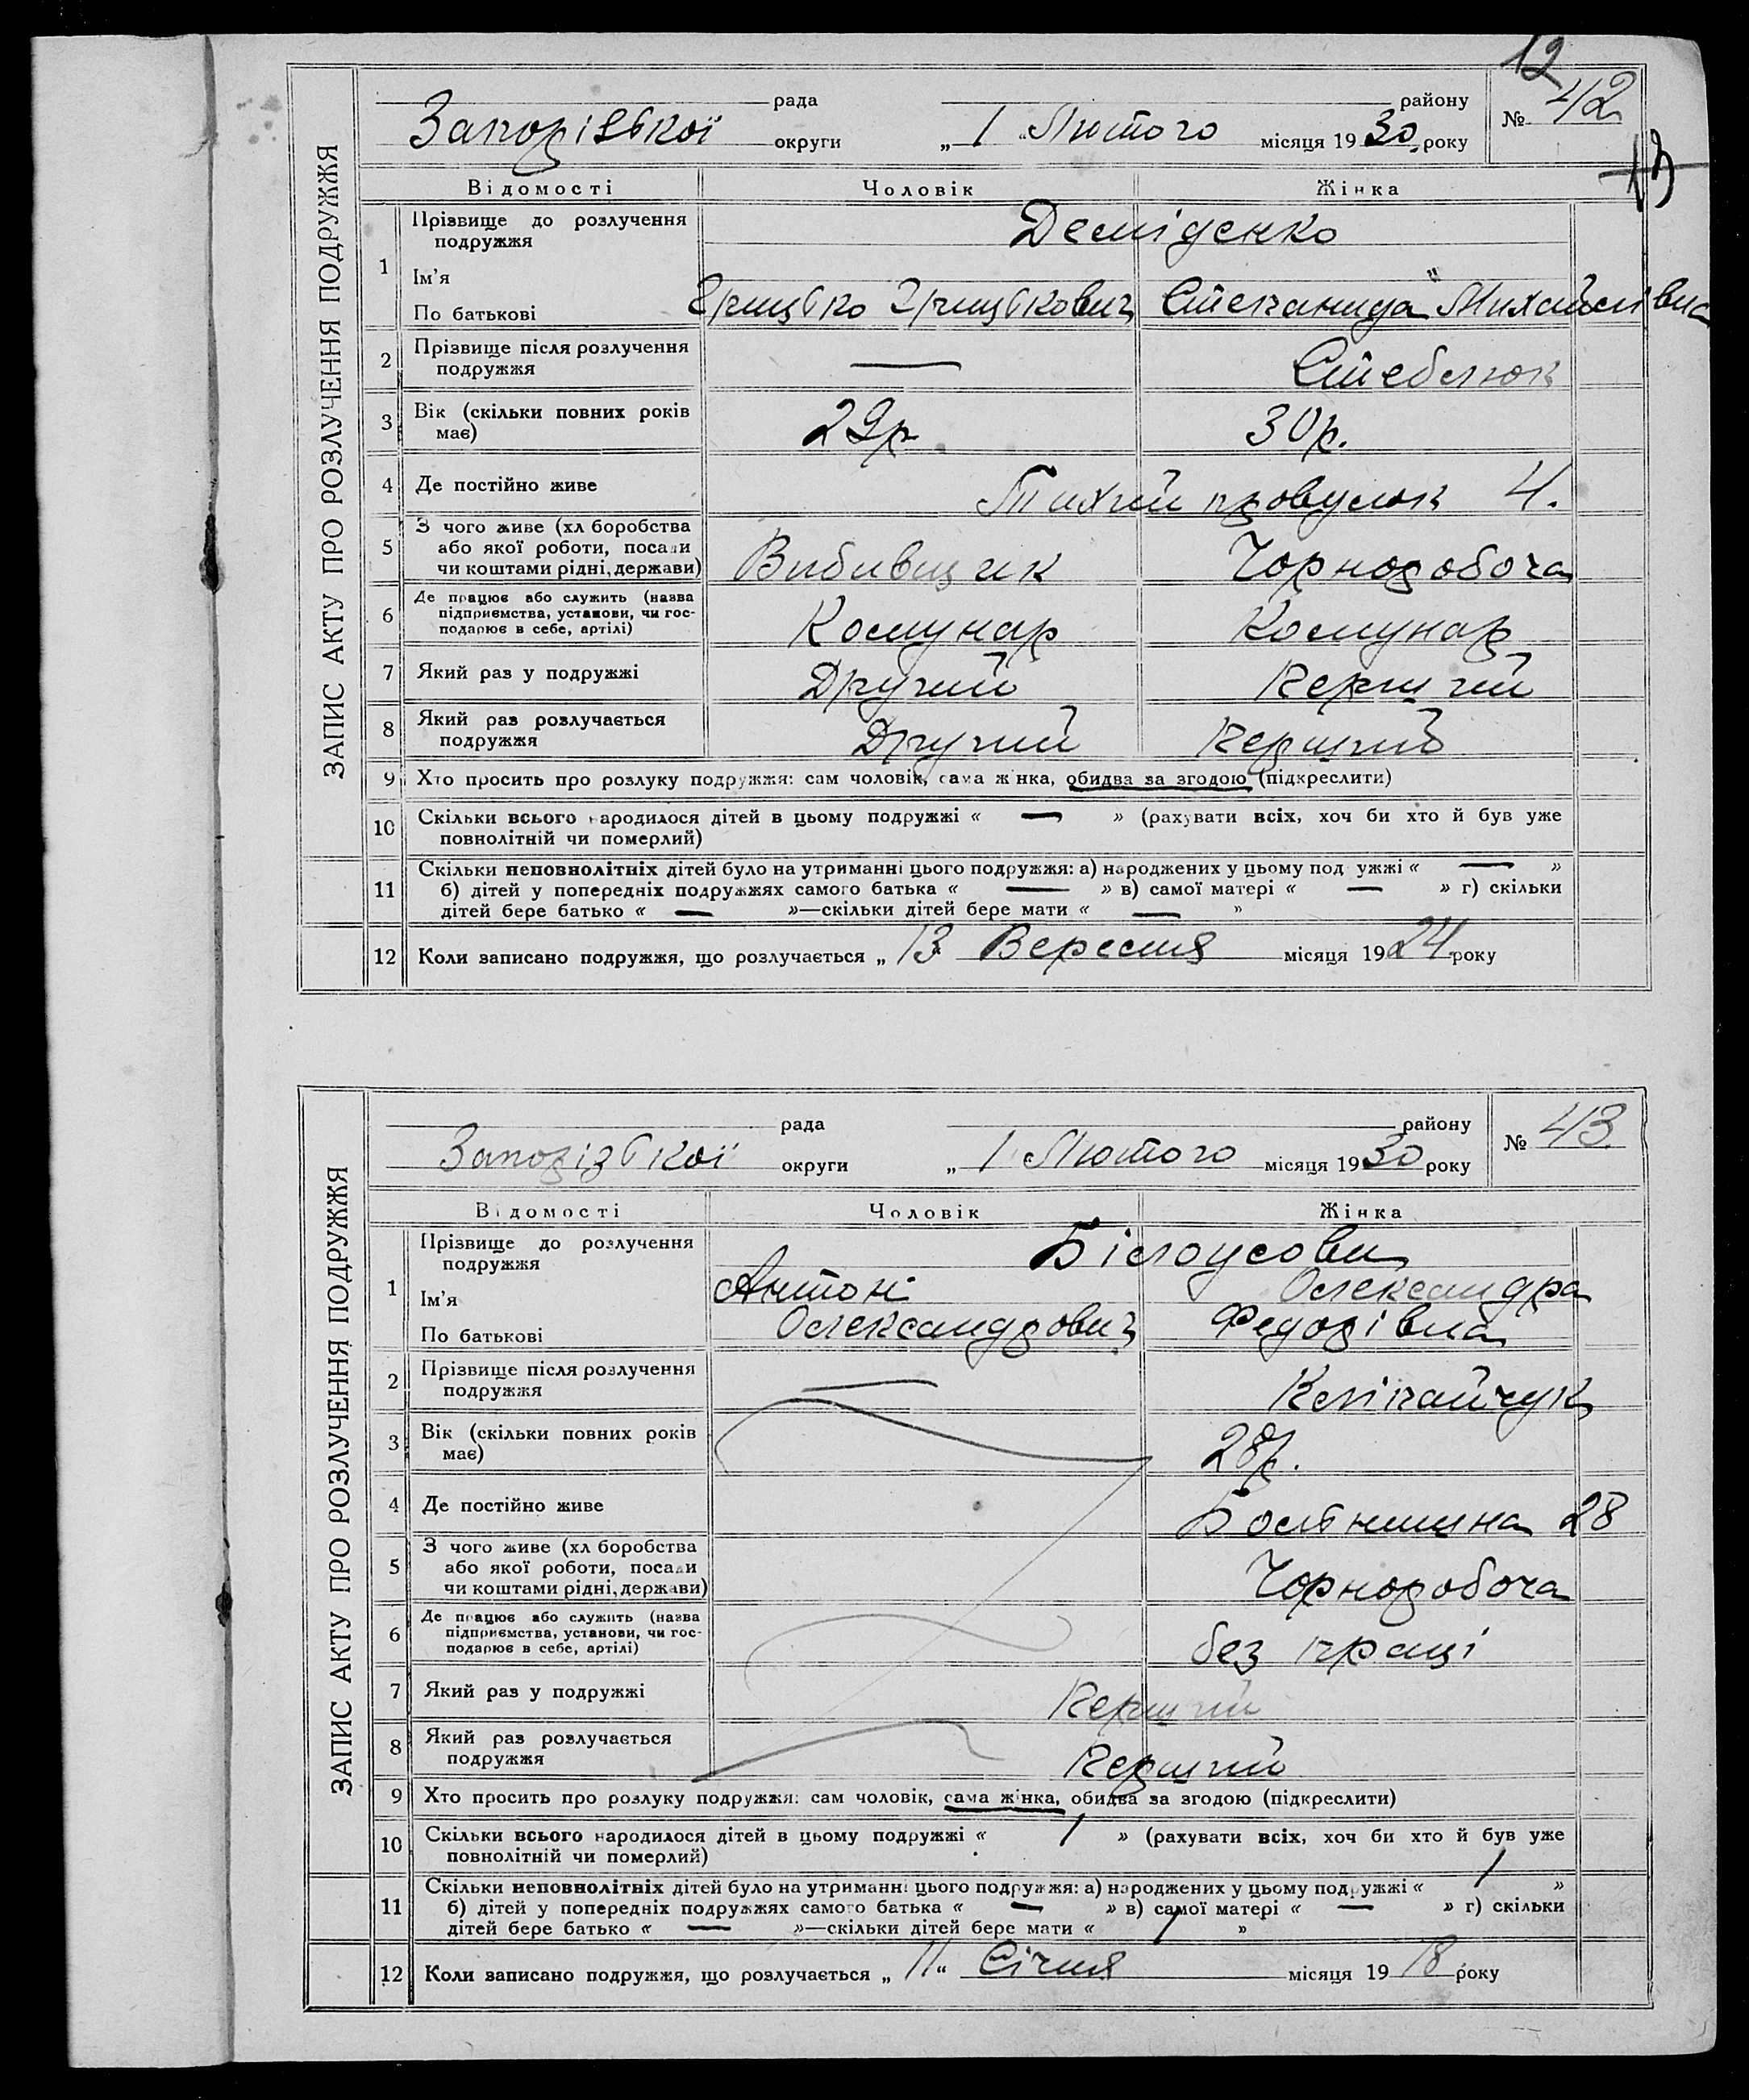 12
13
ЗАПИС АКТУ ПРО РОЗЛУЧЕННЯ ПОДРУЖЖЯ
рада району № 42
Запорізької округи „ 1 " Лютого місяця 1930 року
Відомості Чоловік Жінка
1 Прізвище до розлучення подружжя Деміденко
Ім'я
По батькові Грицько Грицькович Степанида Михайлівна
2 Прізвище після розлучення подружжя — Стеблюк
3 Вік (скільки повних років має) 29р. 30р.
4 Де постійно живе Тихий провулок 4.
5 З чого живе (хліборобства
або якої роботи, посади
чи коштами рідні, держави) Вибивщик Чорноробоча
6 Де працює або служить (назва
підприємства, установи, чи гос-
подарює в себе, артілі) Комунар Комунар
7 Який раз у подружжі Другий Перший
8 Який раз розлучається подружжя Другий Перший
9 Хто просить про розлуку подружжя: сам чоловік, сама жінка, обидва за згодою (підкреслити)
10 Скільки всього народилося дітей в цьому подружжі « — » (рахувати всіх, хоч би хто й був уже
повнолітній чи померлий)
11 Скільки неповнолітніх дітей було на утриманні цього подружжя: а) народжених у цьому подружжі « — »
б) дітей у попередніх подружжях самого батька « — » в) самої матері « — » г) скільки
дітей бере батько « — »—скільки дітей бере мати « — »
12 Коли записано подружжя, що розлучається „ 13 Вересня місяця 1924 року
ЗАПИС АКТУ ПРО РОЗЛУЧЕННЯ ПОДРУЖЖЯ
рада району № 43
Запорізької округи „ 1 " Лютого місяця 1930 року
Відомості Чоловік Жінка
1 Прізвище до розлучення подружжя Білоусови
Ім'я Антон Олександра
По батькові Олександрович Федорівна
2 Прізвище після розлучення подружжя —
3 Вік (скільки повних років має) 28р.
4 Де постійно живе 28
5 З чого живе (хліборобства
або якої роботи, посади
чи коштами рідні, держави) Чорноробоча
6 Де працює або служить (назва
підприємства, установи, чи гос-
подарює в себе, артілі) без праці
7 Який раз у подружжі Перший
8 Який раз розлучається подружжя Перший
9 Хто просить про розлуку подружжя: сам чоловік, сама жінка, обидва за згодою (підкреслити)
10 Скільки всього народилося дітей в цьому подружжі « 1 » (рахувати всіх, хоч би хто й був уже
повнолітній чи померлий)
11 Скільки неповнолітніх дітей було на утриманні цього подружжя: а) народжених у цьому подружжі « 1 »
б) дітей у попередніх подружжях самого батька « — » в) самої матері « — » г) скільки
дітей бере батько « — »—скільки дітей бере мати « 1 »
12 Коли записано подружжя, що розлучається „ 11 " Січня місяця 1918 року